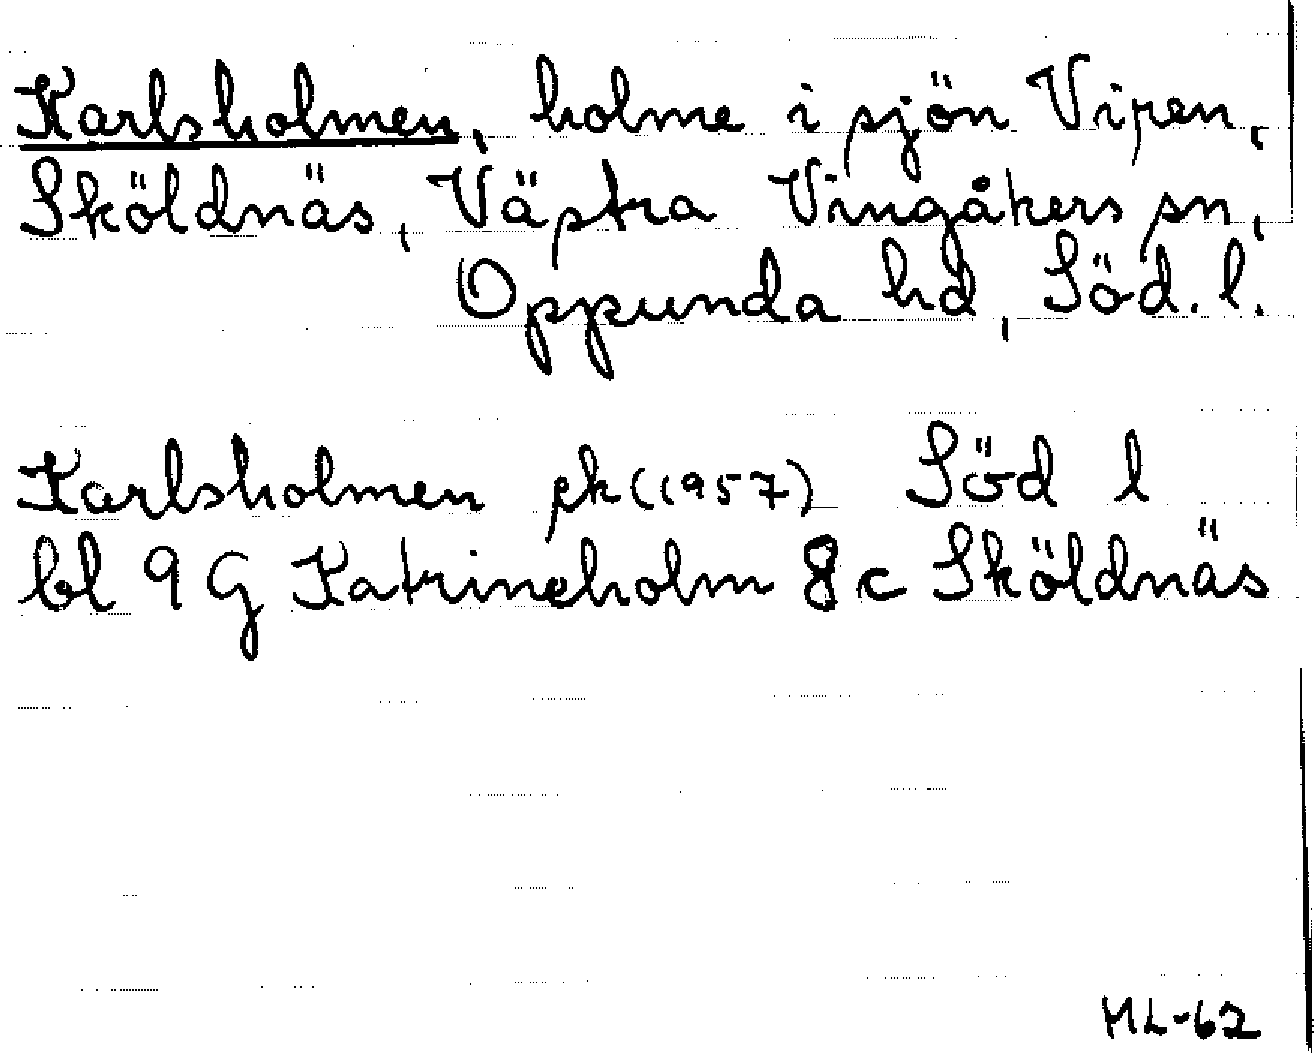 Karlsholmen, holme i sjön Viren,
Sköldnäs, Västra Vingåkers sn,
Oppunda hd, Söd. l.
Karlsholmen ek (1957) Söd l
bl 9 G Katrineholm 8 c Sköldnäs
ML-62